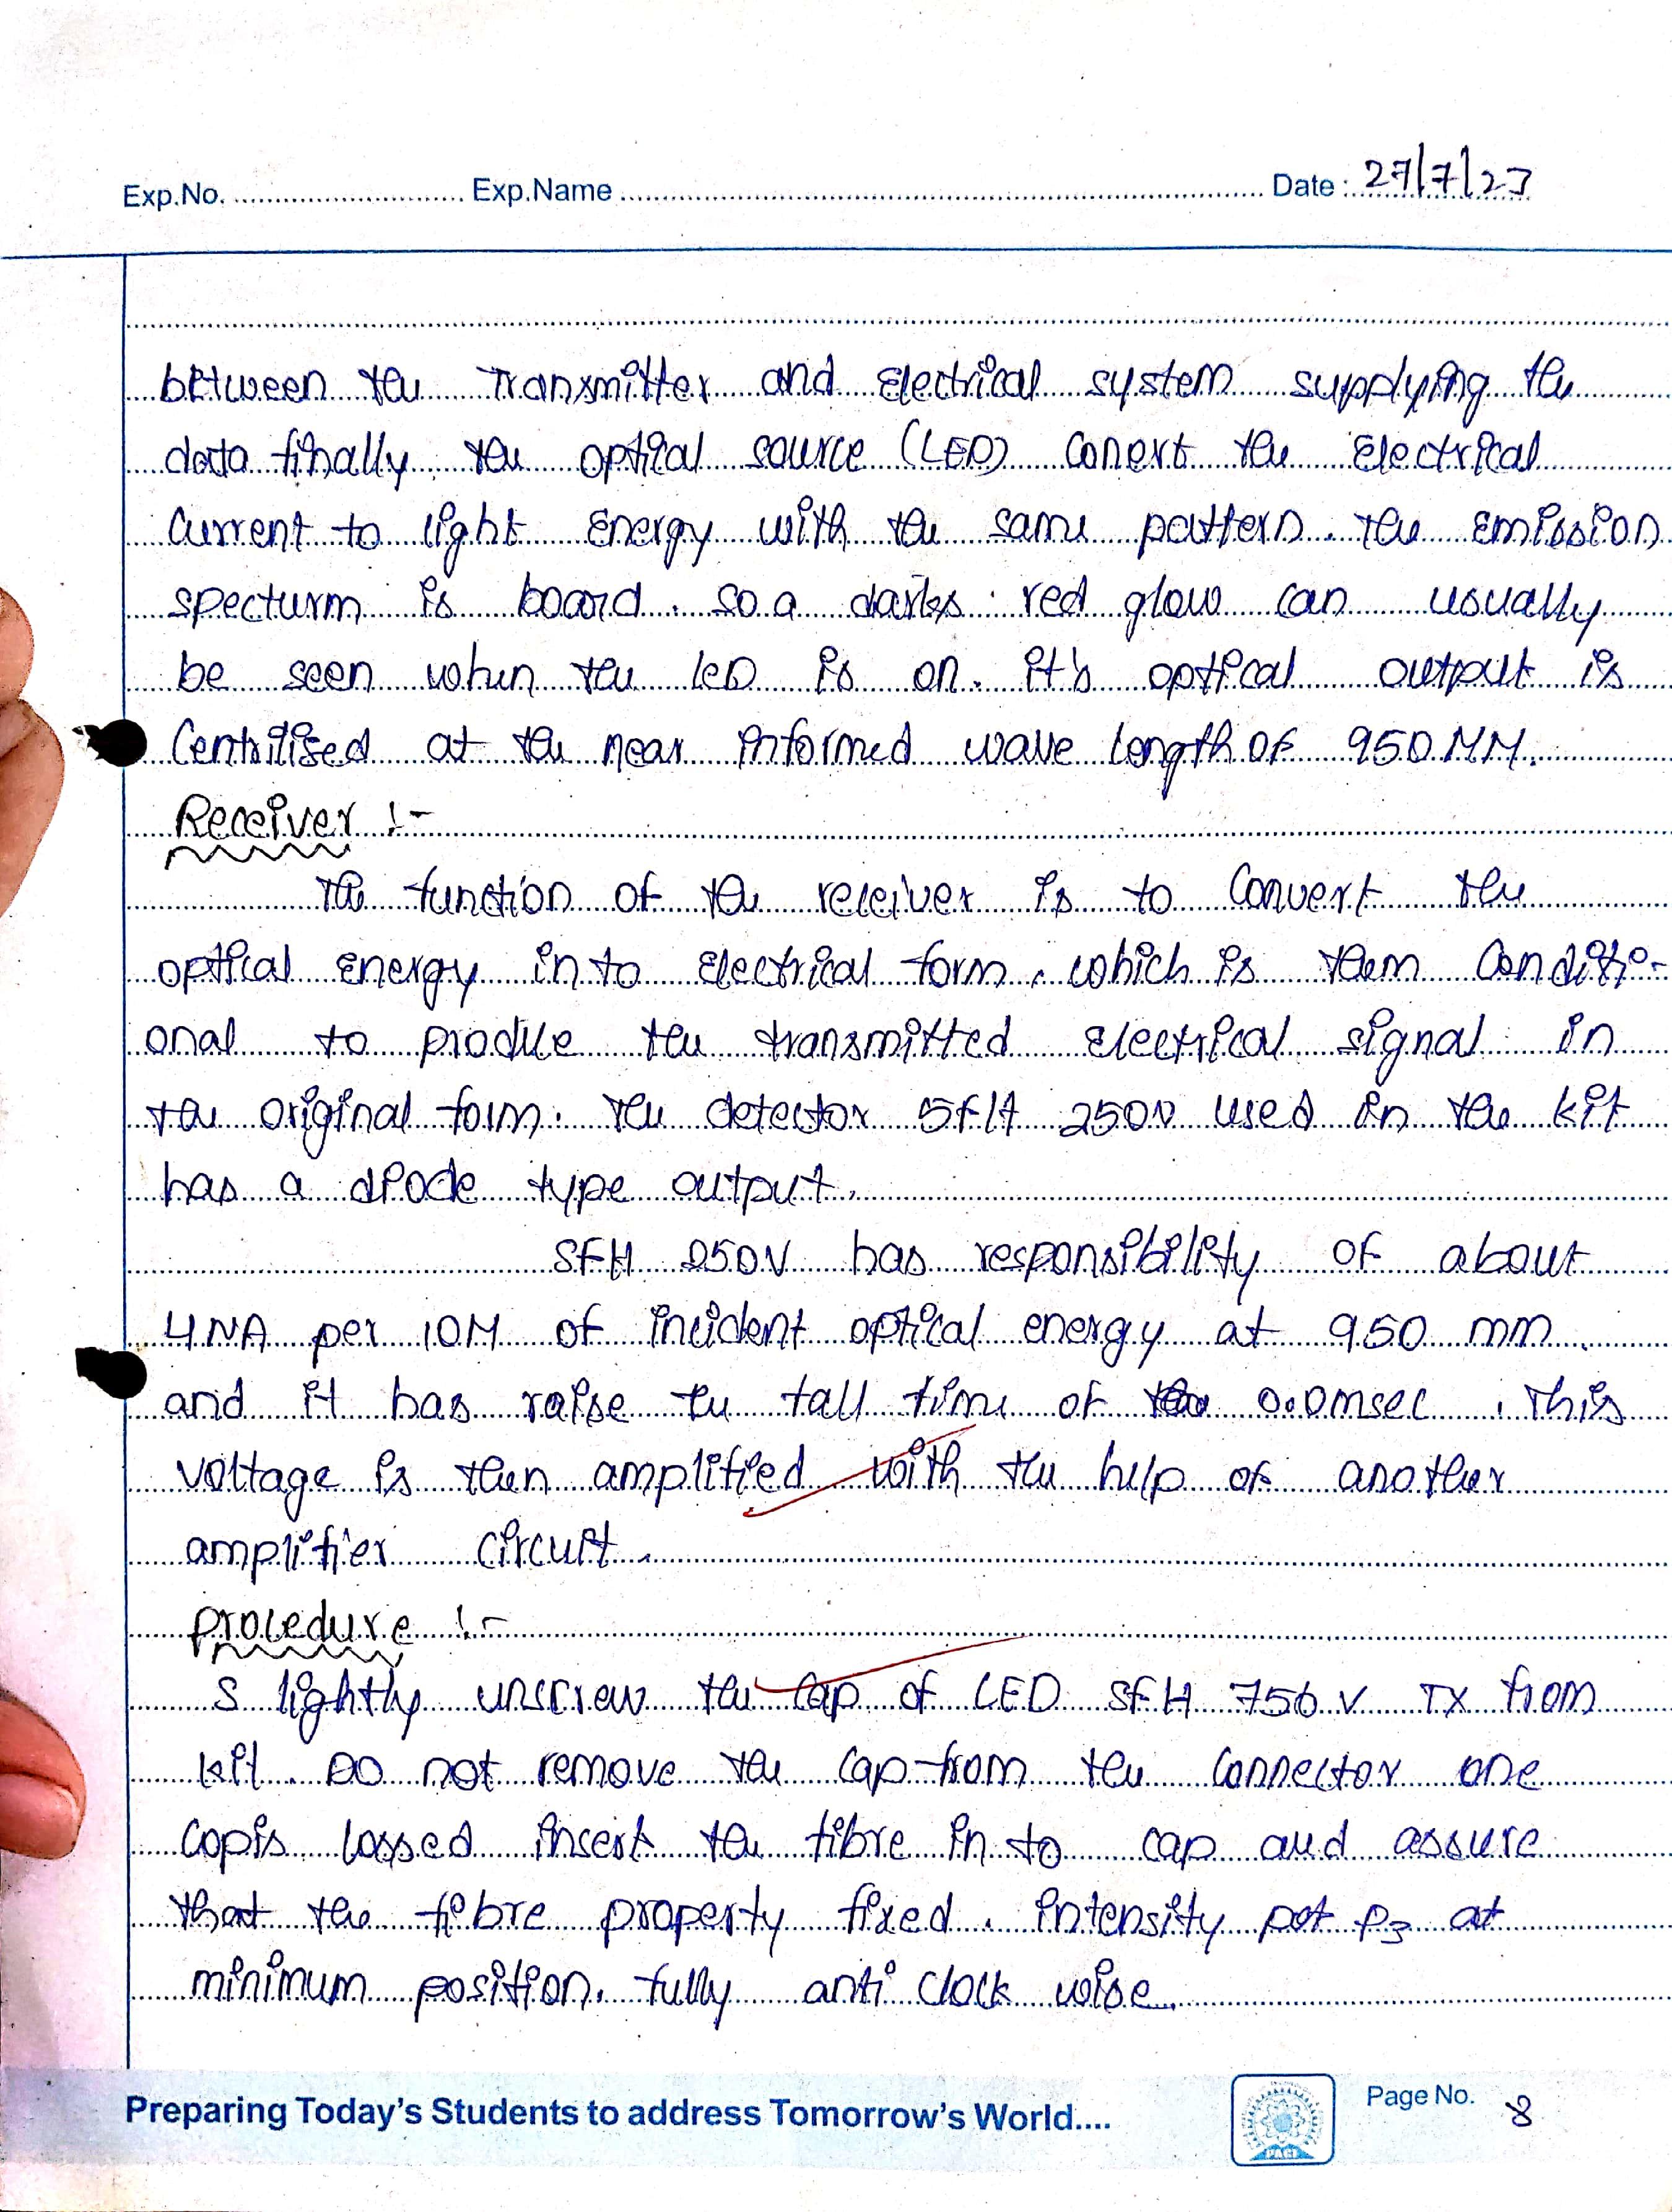 Exp.No. Exp.Name Date : 27/7/23
between the Transmitter and Electrical system supplying the
data finally. the optical source (LED) conert the Electrical
Current to light Energy with the same pattern. the Emission
specturm is board. so a darks red glow can usually
be seen when the LED is on. it's optical output is
Centrilised at the near informed wave length of 950 MM.
Receiver :-
The function of the receiver is to convert the
optical energy in to Electrical form. which is them Conditio-
onal to produe the transmitted electrical signal in
the original form. the detector SFH 250V used in the kit
has a diode type output.
SFH 250V has responsibility of about
4NA per 10M of incident optical energy at 950 mm
and it has raise the tall time of 0.0msec. This
voltage is then amplified with the help of another
amplifier circuit.
procedure :-
S lightly unscrew the cap of LED SFH 756 V TX from
kit. Do not remove the cap from the connector one
copis lossed insert the fibre in to cap and assure
that the fibre property fixed. intensity pot P3 at
minimum position. fully anti clock wise.
Preparing Today's Students to address Tomorrow's World.... PACE Page No. 8